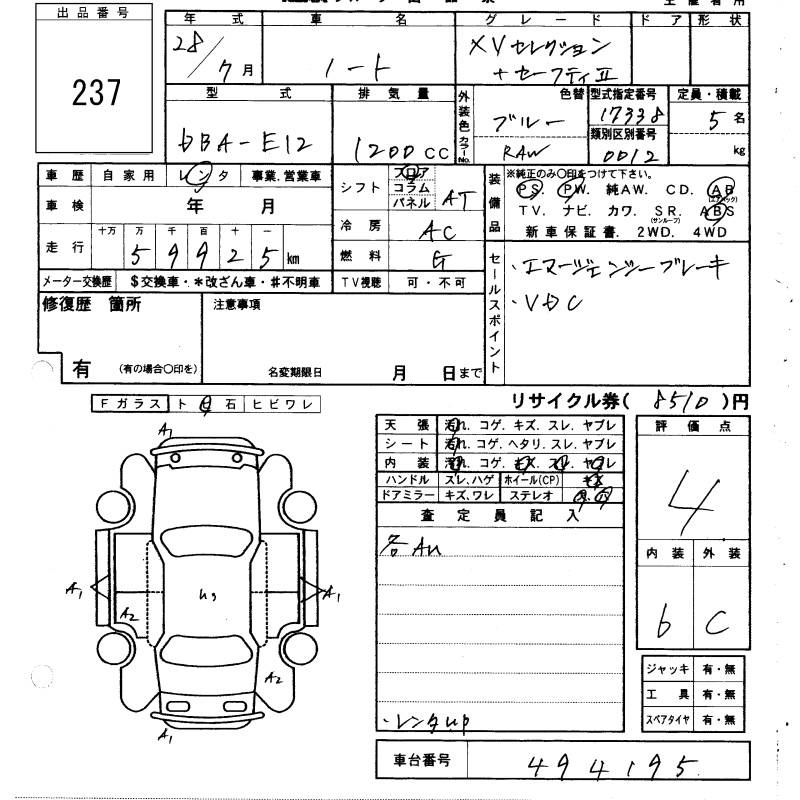 出品番号
237
年 式
28/7月
車 名
ノート
グレード
XVセレクション
+セーフティII
ドア
形 状
型 式
DBA-E12
排気量
1200CC
外装色
色替
ブルー
カラーNo.
RAW
型式指定番号
17338
類別区別番号
0012
定員・積載
5名
kg
車歴 自家用 レンタ 事業.営業車
車検 年 月
走行 十万 万 千 百 十 一
5 9 9 2 5 km
メーター交換歴 $交換車・*改ざん車・#不明車
シフト フロア コラム パネル AT
冷房 AC
燃料 G
TV視聴 可・不可
装備品
※純正のみ〇印をつけて下さい。
PS. PW. 純AW. CD. AB
(エアバック)
TV. ナビ. カワ. SR. ABS
(サンルーフ)
新車保証書. 2WD. 4WD
セールスポイント
・エマージェンシーブレーキ
・VDC
修復歴 箇所
有 (有の場合〇印を)
注意事項
名変期限日 月 日まで
リサイクル券( 8510 )円
Fガラス ト 石 ヒビワレ
A1
A1
A2
U3
A1
A2
A1
天張 汚れ. コゲ. キズ. スレ. ヤブレ
シート 汚れ. コゲ. ヘタリ. スレ. ヤブレ
内装 汚れ. コゲ. キズ. スレ. ヤブレ
ハンドル スレ.ハゲ ホイール(CP) キズ
ドアミラー キズ.ワレ ステレオ
査定員記入
各AU
・レンタup
評価点
4
内装 外装
D C
ジャッキ 有・無
工具 有・無
スペアタイヤ 有・無
車台番号 494195